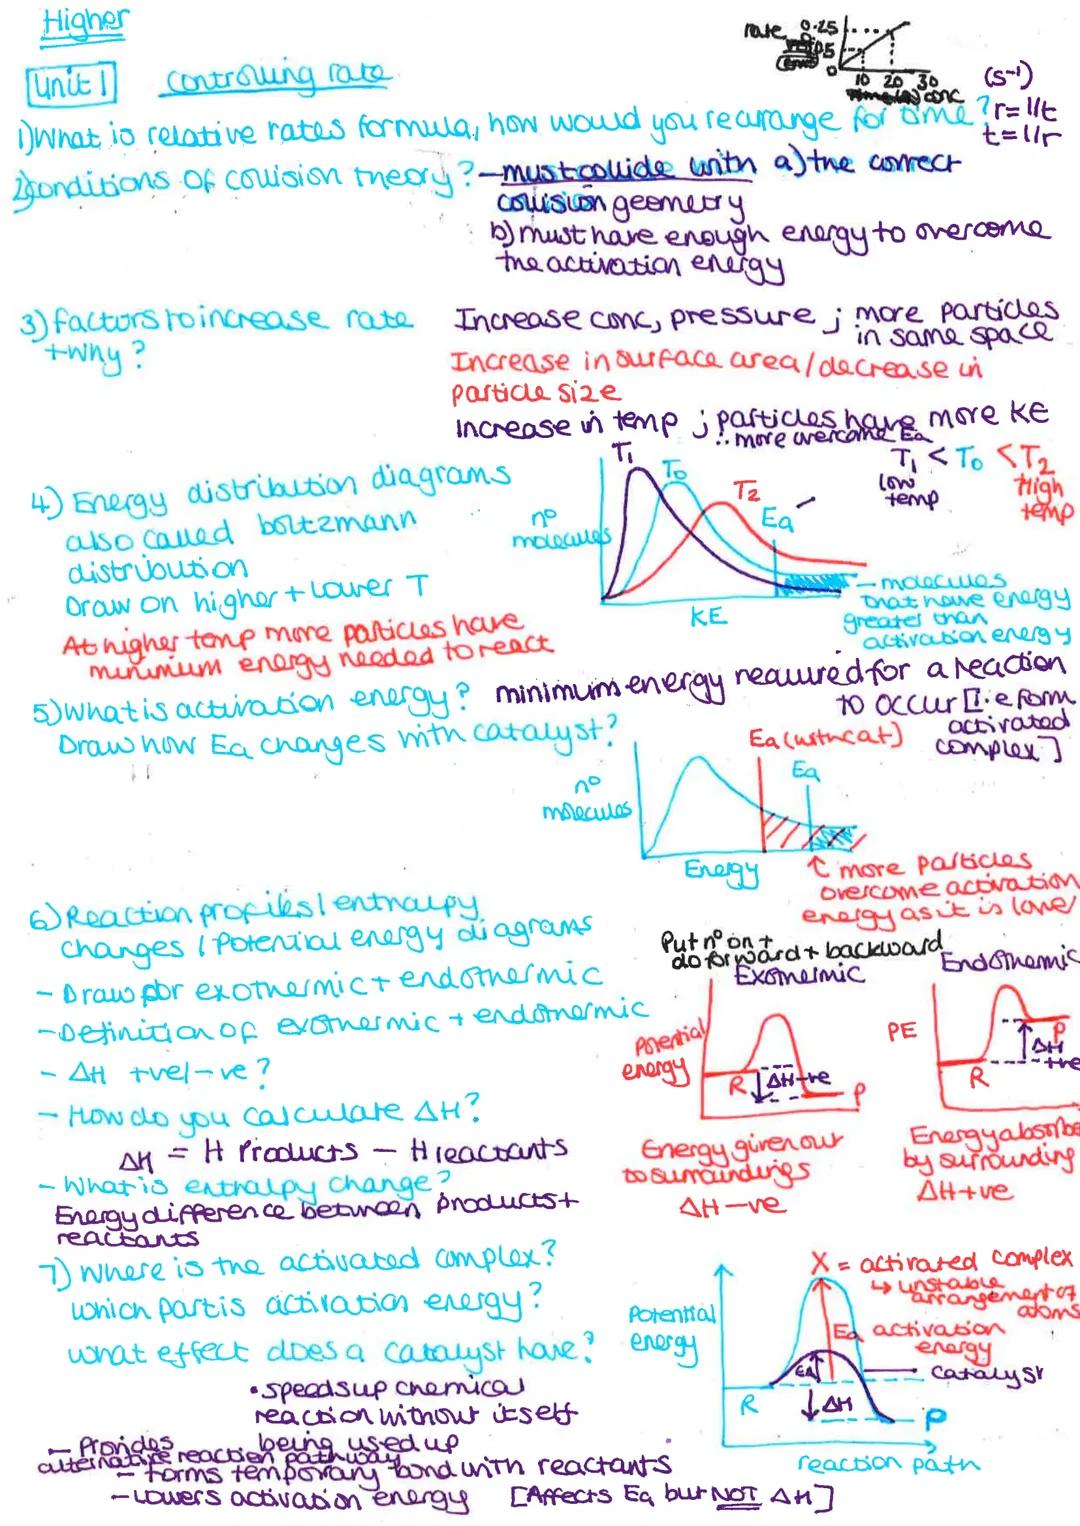 Higher
Unit 1 Controlling rate
rate 0.25
0
10 20 30
conc
(s⁻¹)
1) What is relative rates formula, how would you rearrange for time? r=1/t
t=1/r
2) Conditions of collision theory? - must collide with a) the correct
collision geometry
b) must have enough energy to overcome
the activation energy
3) factors to increase rate
+ why?
Increase conc, pressure ; more particles
in same space
Increase in surface area / decrease in
particle size
Increase in temp ; particles have more KE
∴ more overcome Ea
4) Energy distribution diagrams
also called boltzmann
distribution
Draw on higher + lower T
At higher temp more particles have
minimum energy needed to react
T₁ T₀ T₂ Ea
T₁ < T₀ < T₂
low
temp
High
temp
n°
molecules
KE
- molecules
that have energy
greater than
activation energy
5) What is activation energy? minimum energy required for a reaction
to occur [i.e form
activated
complex]
Draw how Ea changes with catalyst?
Ea (with cat)
Ea
n°
molecules
Energy
↑ more particles
overcome activation
energy as it is lower
6) Reaction profiles / enthalpy
changes / Potential energy diagrams
- Draw for exothermic + endothermic
- Definition of exothermic + endothermic
- ΔH +ve/-ve?
- How do you calculate ΔH?
ΔH = H Products - H reactants
- What is enthalpy change?
Energy difference between products +
reactants
Put n° on +
do forward + backward
Exothermic
Potential
energy
R ΔH-ve P
Energy given out
to surroundings
ΔH -ve
Endothermic
PE
R P
ΔH
+ve
Energy absorbe
by surrounding
ΔH +ve
7) Where is the activated complex?
which part is activation energy?
what effect does a catalyst have?
• speeds up chemical
reaction without itself
being used up
- Provides
alternative reaction pathway
- forms temporary bond with reactants
- Lowers activation energy [Affects Ea but NOT ΔH]
X = activated complex
↳ unstable
arrangement of
atoms
Potential
energy
Ea activation
energy
Ea
catalyst
R ΔH P
reaction path